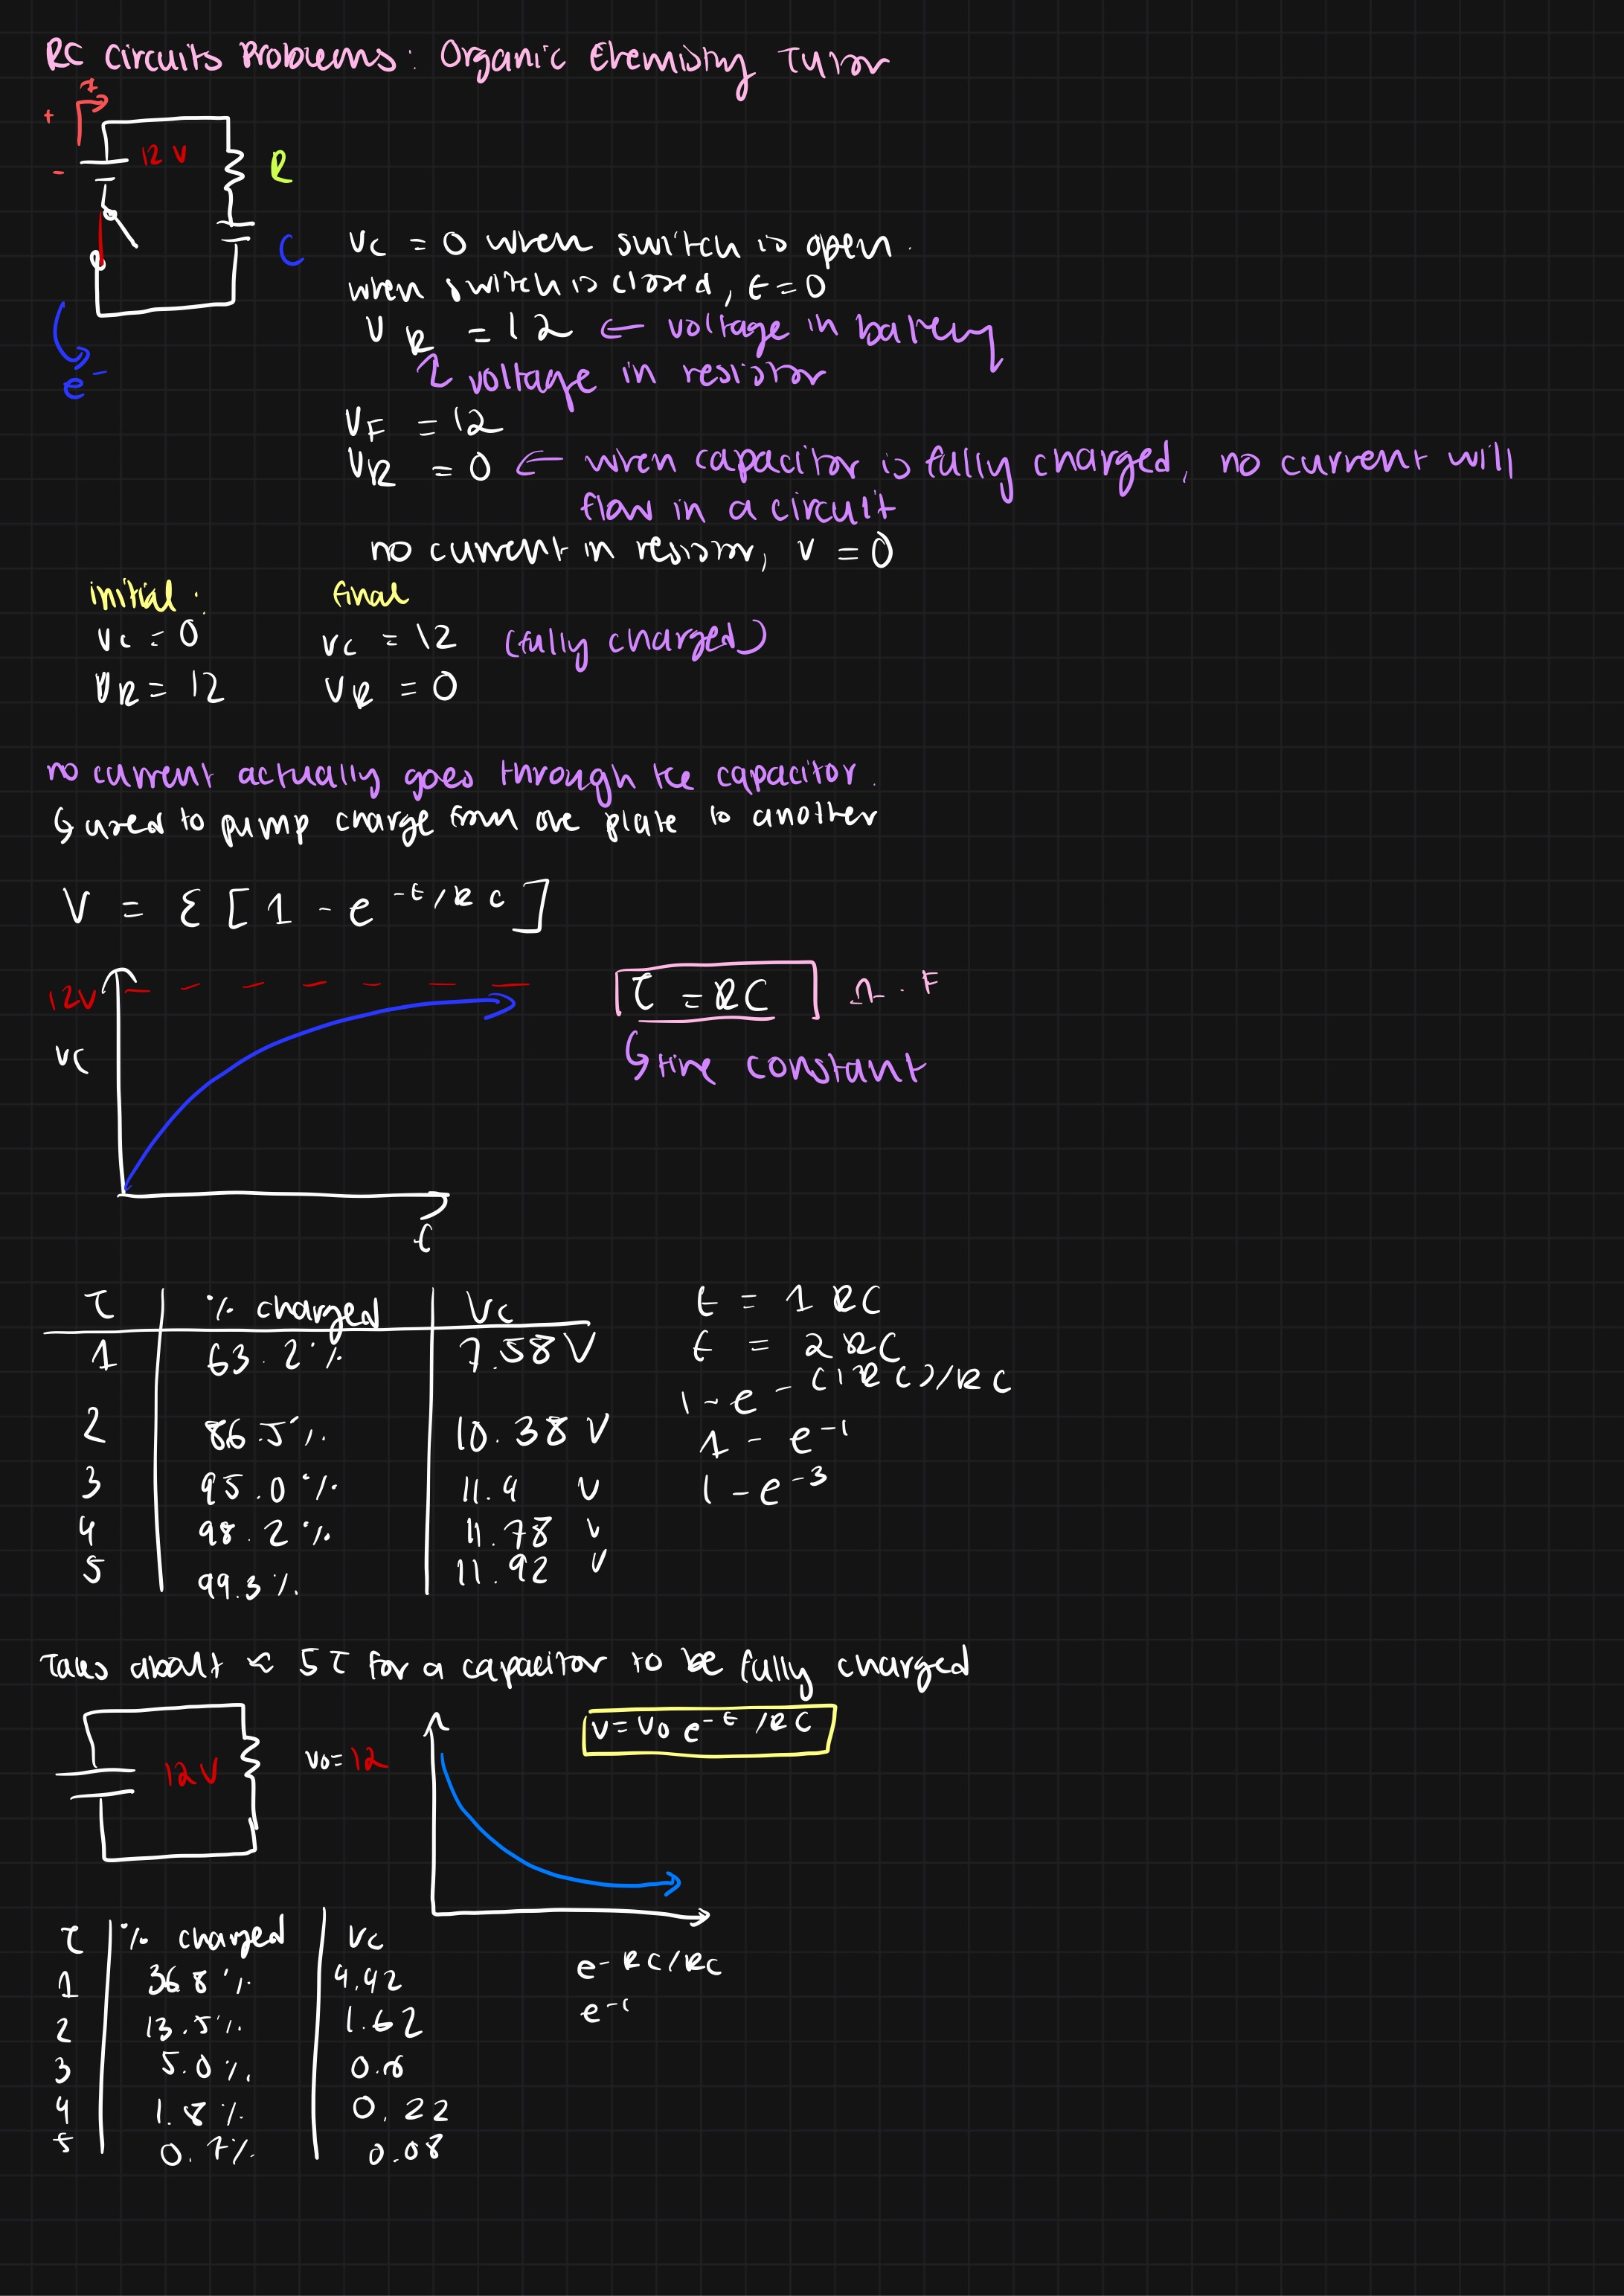 RC Circuits Problems: Organic Chemistry Tutor
+
I
-
12 V
R
C
e⁻
Vc = 0 when switch is open.
when switch is closed, t = 0
V R = 12 ← voltage in battery
voltage in resistor
VF = 12
VR = 0 ← when capacitor is fully charged, no current will
flow in a circuit
no current in resistor, V = 0
initial: final
Vc = 0 Vc = 12 (fully charged)
VR = 12 VR = 0
no current actually goes through the capacitor.
↳ used to pump charge from one plate to another
V = ε [ 1 - e^-t/RC ]
12V
Vc
t
τ = RC Ω · F
↳ time constant
τ | % charged | Vc
1 | 63.2% | 7.58 V
2 | 86.5% | 10.38 V
3 | 95.0% | 11.4 V
4 | 98.2% | 11.78 V
5 | 99.3% | 11.92 V
t = 1 RC
t = 2 RC
1 - e^-(1RC)/RC
1 - e⁻¹
1 - e⁻³
Takes about ≈ 5τ for a capacitor to be fully charged
12V
V0 = 12
V = V0 e^-t/RC
τ | % charged | Vc
1 | 36.8% | 4.42
2 | 13.5% | 1.62
3 | 5.0% | 0.6
4 | 1.8% | 0.22
5 | 0.7% | 0.08
e^-RC/RC
e⁻¹